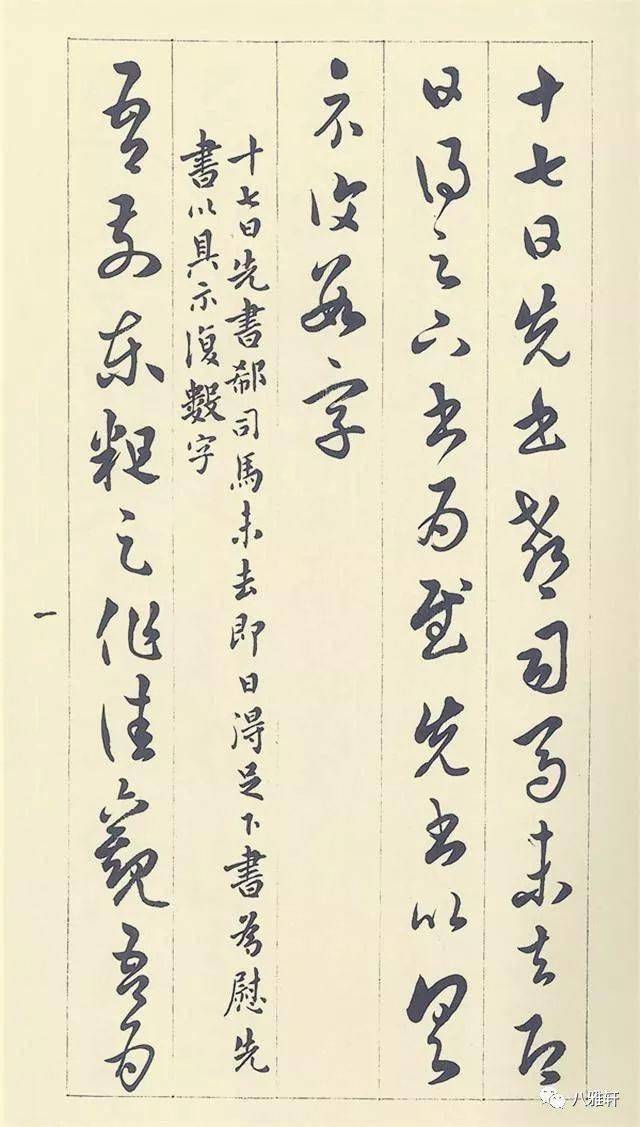 十七日先书郗司马未去即
日得足下书为慰先书以具
示复数字
十七日先書郗司馬未去即日得足下書為慰先
書以具示復數字
吾前东粗足作佳观吾为
一
八雅轩